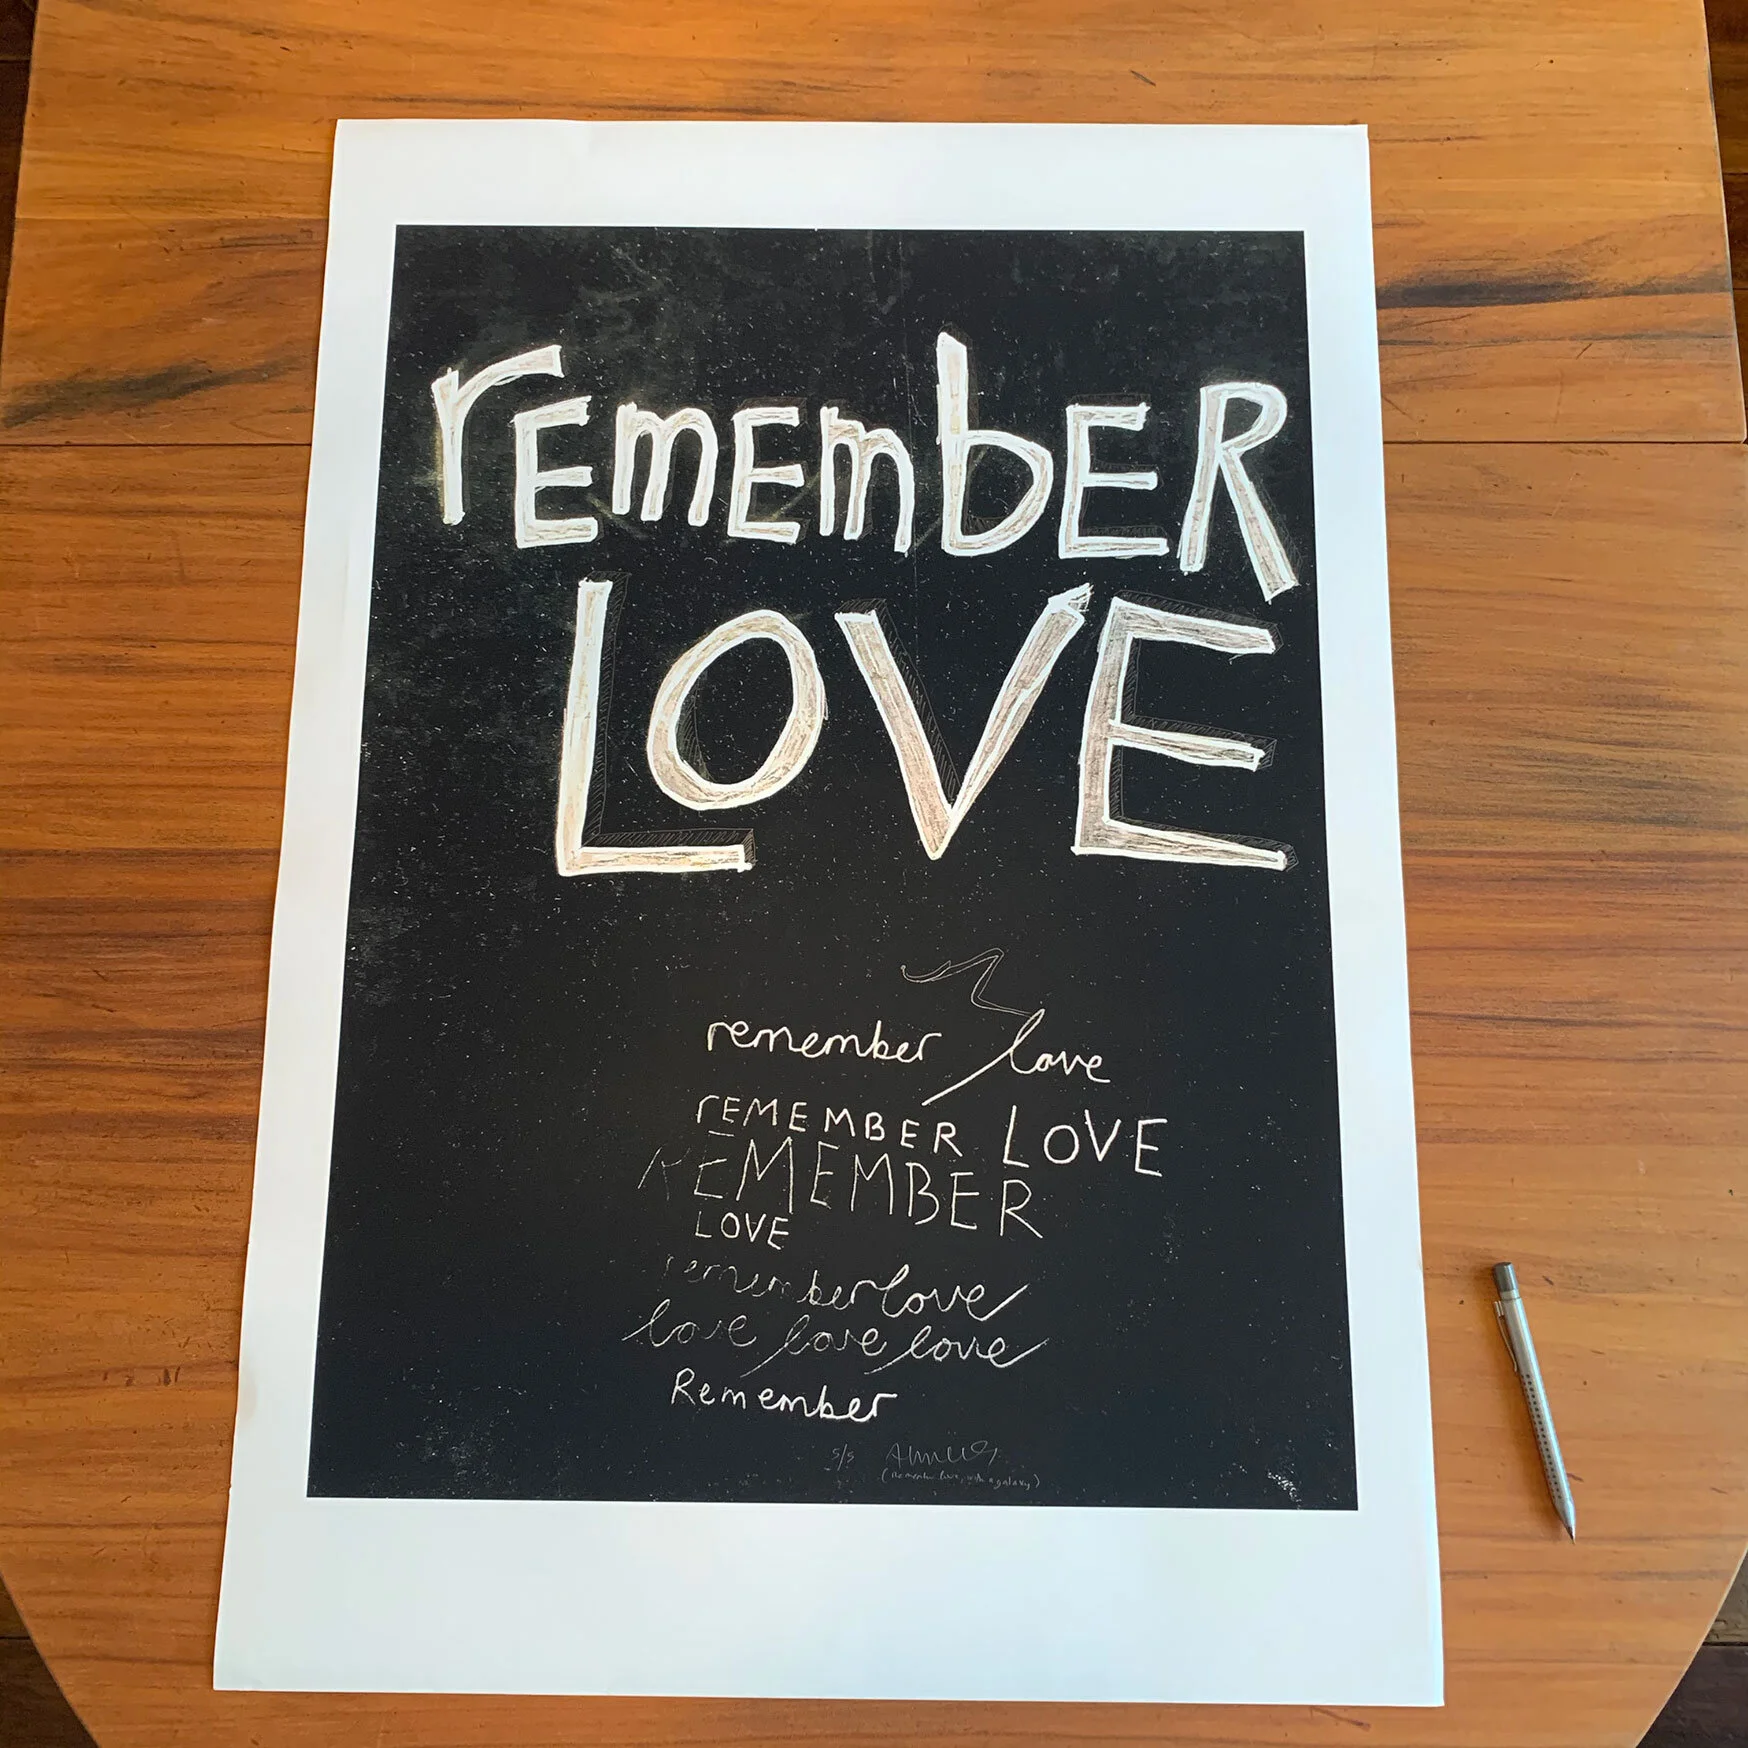 rEmEmbER
LOVE
remember love
rEMEMBER LOVE
REMEMBER
LOVE
rememberlove
love love love
Remember
5/5
(Remember love, with a galaxy)